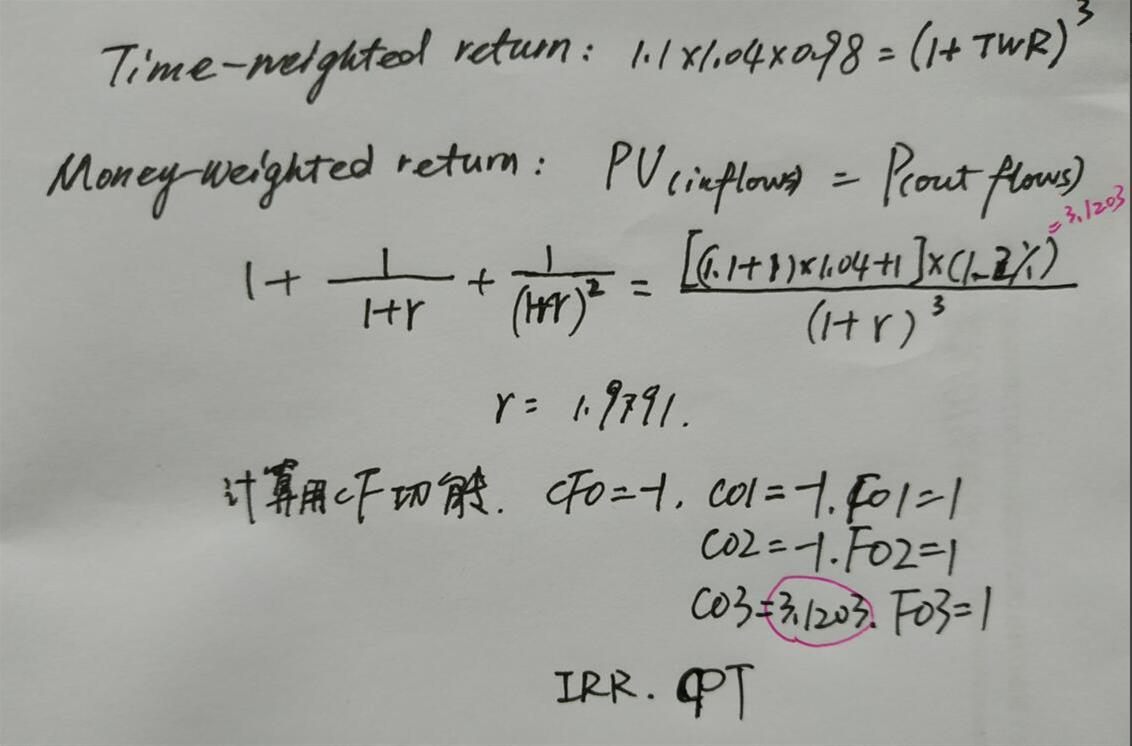 Time-weighted return: 1.1×1.04×0.98=(1+TWR)³
Money-weighted return: PV(inflows) = P(out flows)
=3.1203
1+ 1/(1+r) + 1/(1+r)² = [(1.1+1)×1.04+1]×(1-2%)/(1+r)³
r= 1.9791.
计算用CF功能. CF0=-1. C01=-1. F01=1
C02=-1. F02=1
C03=3.1203. F03=1
IRR. CPT